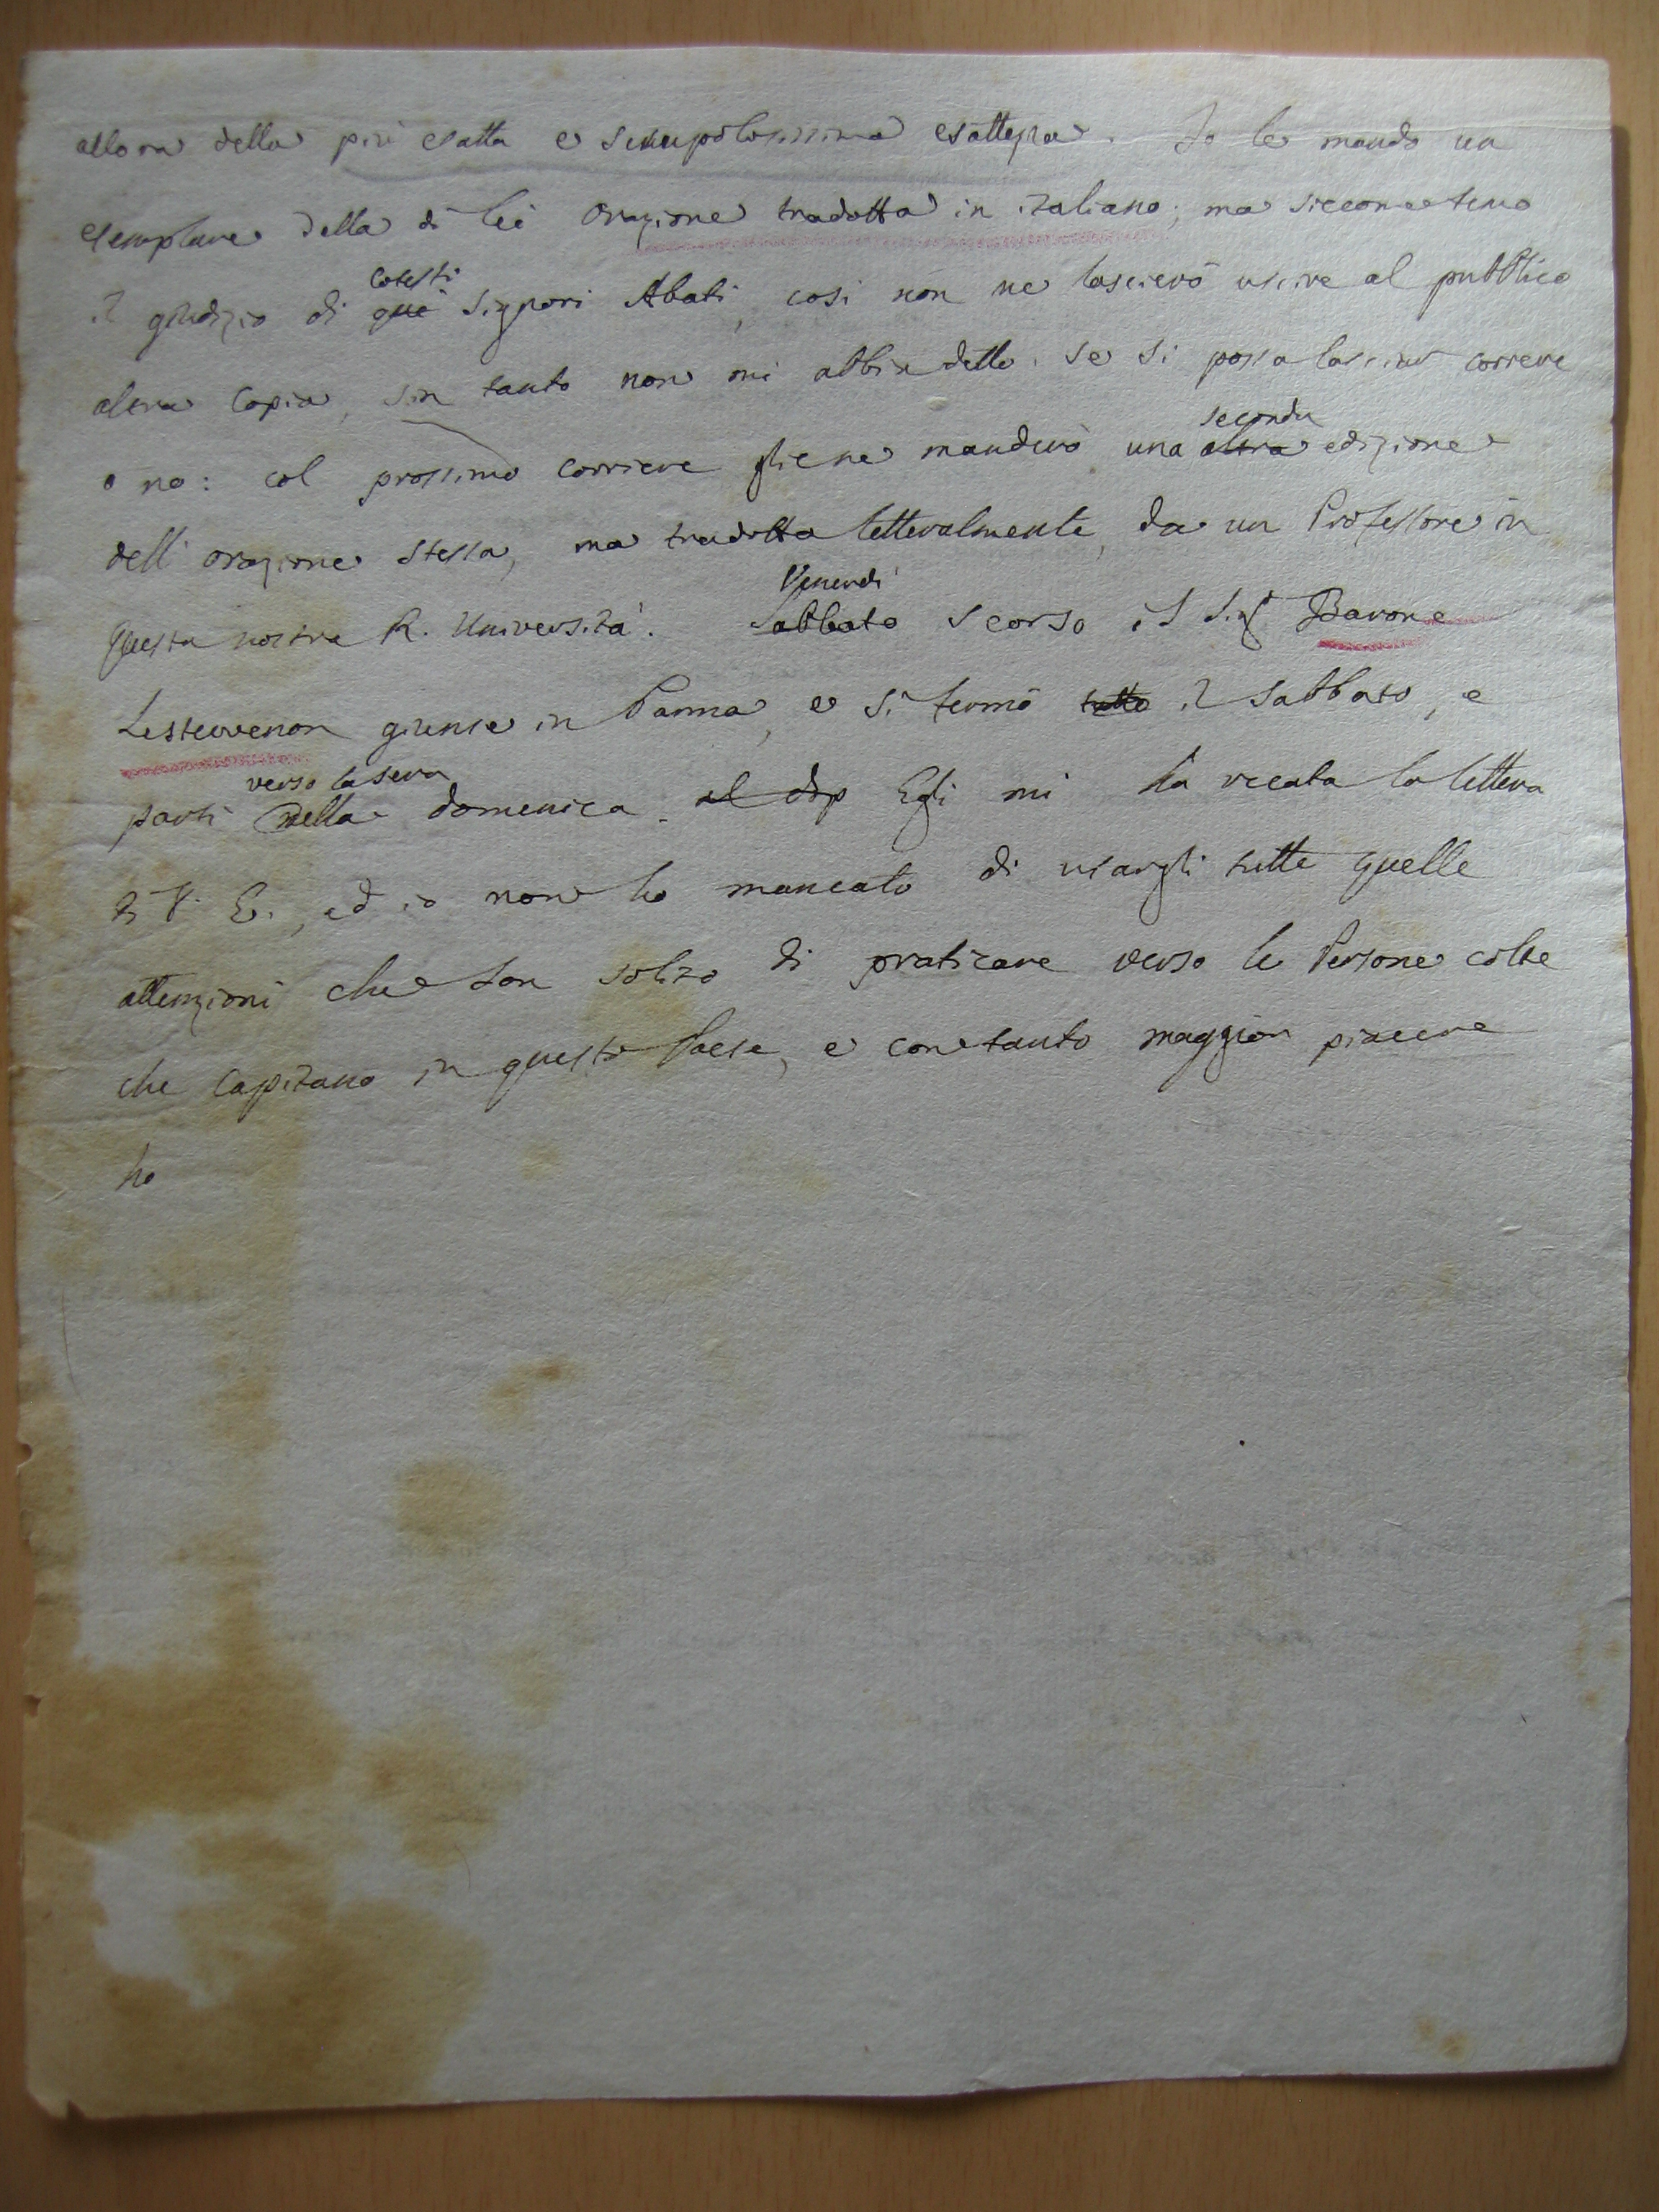 allora della più esatta e scrupolosissima esattezza. Io le mando un
esemplare della di lei Orazione tradotta in italiano; ma siccome temo
cotesti
il giudizio di que Signori Abati, così non ne lascierò uscire al pubblico
altra copia, sin tanto non mi abbia detto, se si possa lasciar correre
seconda
o no: col prossimo corriere gliene manderò una altra edizione
dell'orazione stessa, ma tradotta letteralmente, da un Professore in
Venerdì
questa nostra R. Università. Sabbato scorso il Sig.r Barone
Lestevvenon giunse in Parma, e si fermò tutto il sabbato, e
verso la sera
partì della domenica. al dop Egli mi ha recata la lettera
di V. E., ed io non ho mancato di usargli tutte quelle
attenzioni che son solito di praticare verso le Persone colte
che capitano in questo Paese, e con tanto maggior piacere
ho